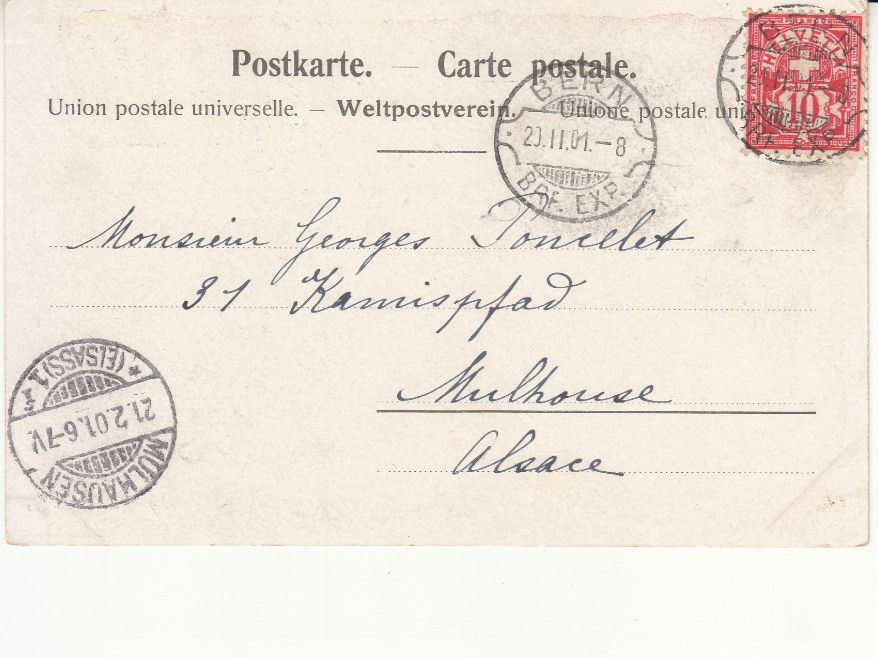 Postkarte. — Carte postale.
Union postale universelle. – Weltpostverein. – Unione postale uni
FRANCO
HELVETIA
10
BERN
20.II.01.–8
BRF. EXP.
Monsieur Georges Poncelet
31 Kamispfad
Mulhouse
Alsace
MÜLHAUSEN
21.2.01.6-7V.
* (ELSASS) 1 *